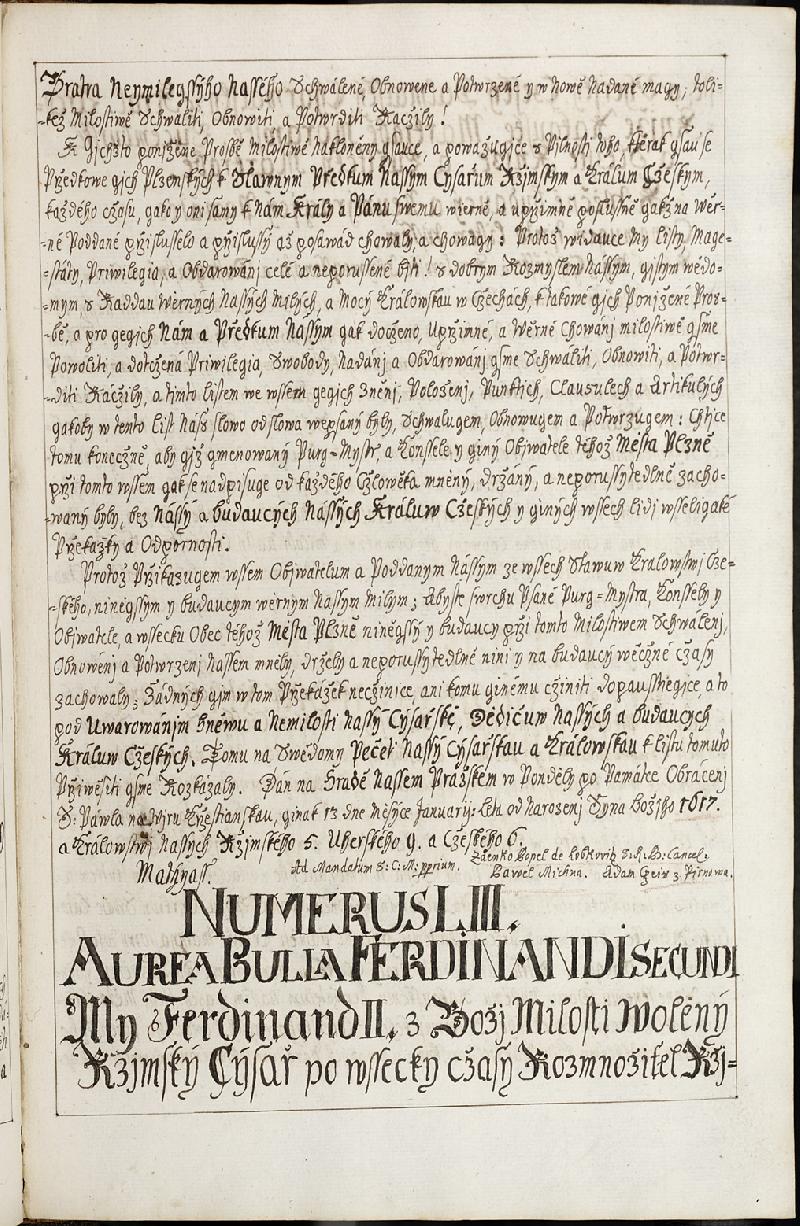 Bratra Neymilegssyho Nasseho Schwálené Obnowene a Potwrzené y w nowě nadané magy, toli-
-kéž Milostiwě Schwáliti, Obnowiti a Potwrditi Račzily!
K Gichžto ponižene Prosbě Milostiwě nakloněny gsauce, a powážugice y Pilnosti toho, kterak gsau se
Pržedkowe gich Plzenských k Slawnym Pržedkum Nassym Cysaržum Ržjmským a Králum Cžeským,
každého cžasu, gako y oni samy k nám Krály a Pánu swemu wierně, a uprzimně poslussně gakž na Wěr-
-né Poddané pržislusselo a pržislussý až posawád chowaly a chowagy: Protož widauce My Listy, Mage-
-státy, Priwilegia, a Obdarowánj celé a neporussené býti! s dobrým Rozmyslem Nassym, gistym wědo-
-mym, s Raddau Wěrných Nassych Milých, a Mocý Králowskau w Cžechách, k takowé gich Ponižené Pros-
-bě, a pro gegich Nám a Pržedkum Nassym gak dotčeno, Uprzimné, a Wěrné Chowánj milostiwě gsme
Powoliti, a dotcžená Priwilegia, Swobody, Nadánj a Obdarowánj gsme Schwáliti, Obnowiti, a Potwr-
-diti Račzily, a tjmto listem we wssem gegich Zněnj, Položenj, Punktich, Clausulech a Artikulých
gakoby w tento list náss slowo od slowa wepsaný byly, Schwalugem, Obnowugem a Potwrzugem: Chtice
tomu konecžně, aby giž gmenowaný Purg-Mystr a Konssele, y giny Obywatele téhož Města Plzně
pržj tomto wssem gak se nadpisuge od každého Cžlowěka mněný, držáný, a neporussytedlně zacho-
-waný byly, bez Nássy a budaucých Nássých Králuw Cžeských y giných wssech lidj wsselikgaké
Pržekážky a Odpornosti.
Protož Pržikazugem wssem Obywatelum a Poddanym Nassym ze wssech Stawuw Králowstwj Cže-
-ského, ninegssym y budaucym wěrnym Nassym Milym; Abyste swrchu Psané Purg-Mystra, Konssely y
Obywatele, a wssecku Obec téhož Města Plzně niněgssý y budaucy pržj tomto Milostiwem Schwálenj,
Obnowénj a Potwrzenj Nassem měly, držely a neporussytedlně ninj y na budaucý wěcžné cžasy
zachowaly; Žádných gim w tom Pržekážek necžinice, ani komu ginému cžiniti dopausstiegice, a to
pod Uwarowánjm hněwu a Nemilosti Nassý Cýsaržské, Dědicžuw Nassých a budaucych
Králuw Cžeských. Tomu na Swědomy Pecžet Nassý Cýsaržskau a Králowskau k listu tomuto
Pržiwěsiti gsme Rozkázaly. Dán na Hradě Nassem Pražském w Ponděly po Památce Obrácenj
S: Pawla na Wjru Krzestianskau, ginak 13 dne Měsyce Januarij: Léta od Narozenj Syna Božjho 1617.
a Králowstwj Nassých Ržjmského 5. Uherského 9. a Cžeského 6.
Mathyass. Ad Mandatum S: C: M: pprium. Zdenko Popel de Lobkowitz S: R: B: Cancel:
Pawel Michna. Adam
NUMERUS LIII.
AUREA BULLA FERDINANDI SECUNDI
My Ferdinand II. z Božj Milosti Wolený
Ržjmský Cýsař po wssecky cžasý Rozmnožitel Ržj-